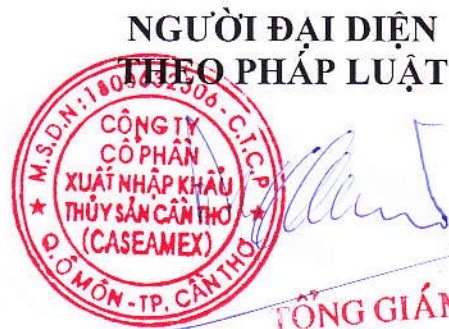 NGƯỜI ĐẠI DIỆN
THEO PHÁP LUẬT
M.S.D.N:1800632306-C.T.C.P
CÔNG TY
CỔ PHẦN
XUẤT NHẬP KHẨU
THỦY SẢN CẦN THƠ
(CASEAMEX)
Q.Ô MÔN-TP. CẦN THƠ
TỔNG GIÁM